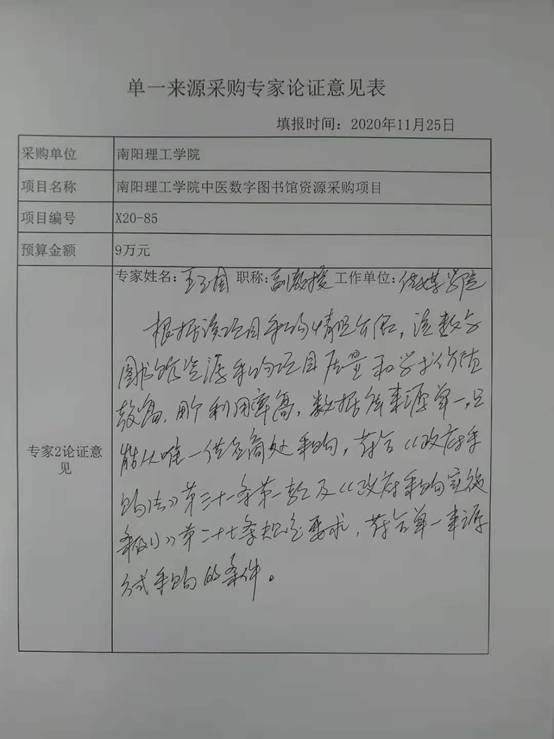 单一来源采购专家论证意见表
填报时间：2020年11月25日
采购单位 南阳理工学院
项目名称 南阳理工学院中医数字图书馆资源采购项目
项目编号 X20-85
预算金额 9万元
专家姓名：王 国 职称：副教授 工作单位：传媒学院
专家2论证意见
根据该项目采购情况介绍，该数字
图书馆资源采购项目质量和学术价值
较高，用户利用率高，数据库来源单一，只
能从唯一供应商处采购，符合《政府采
购法》第三十一条第一款及《政府采购实施
条例》第二十七条规定要求，符合单一来源
方式采购的条件。